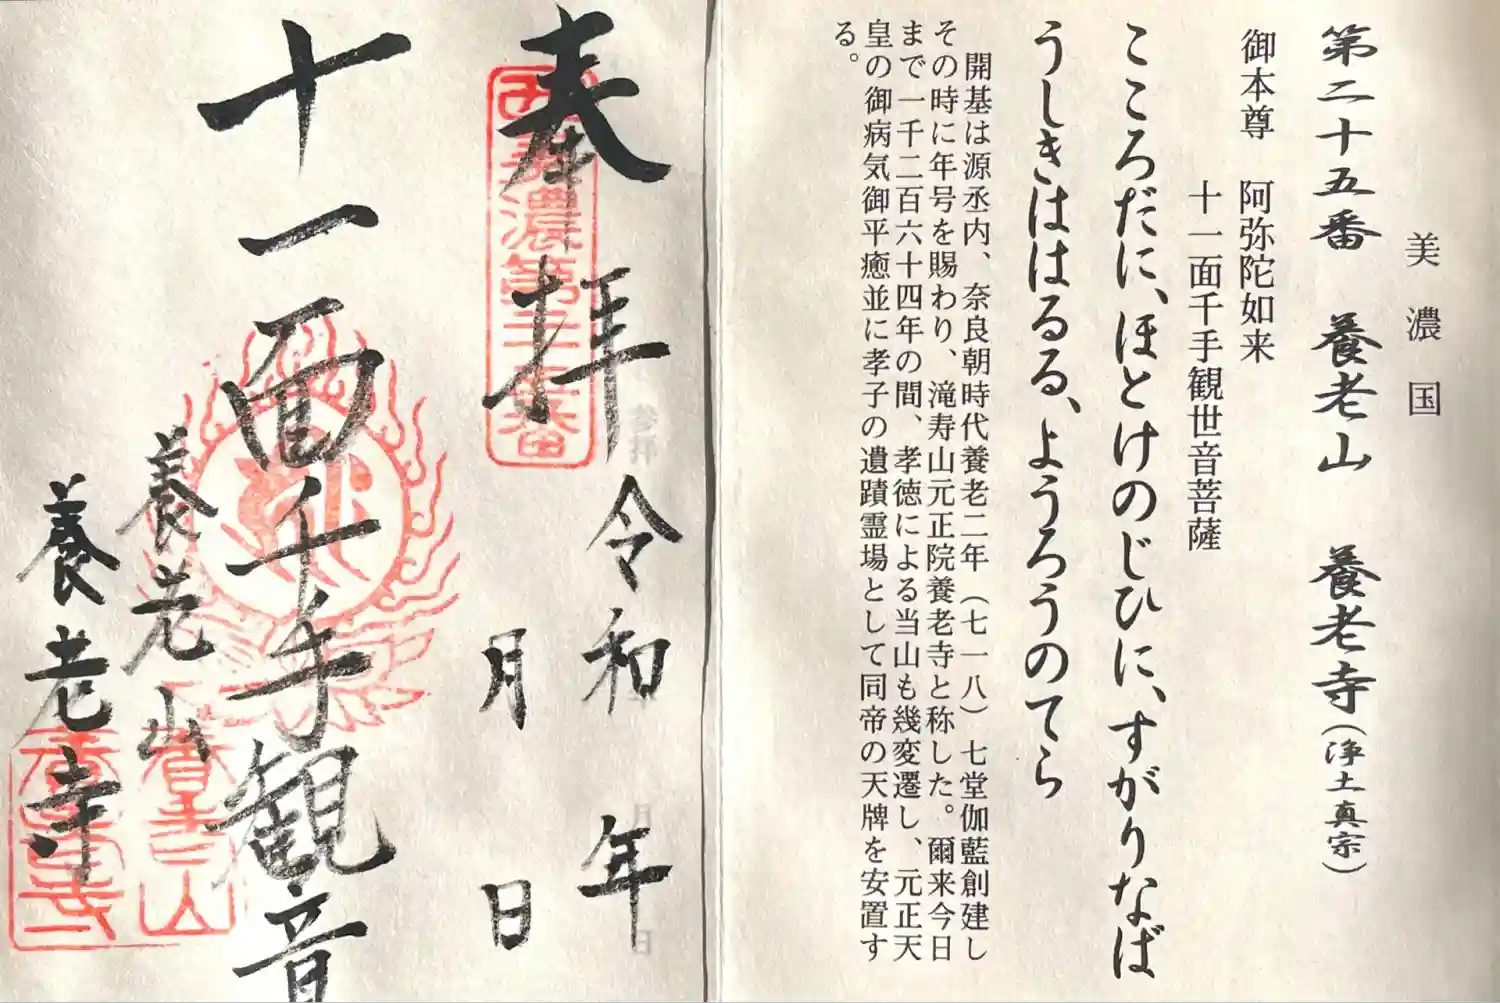 美濃国
第二十五番 養老山 養老寺(浄土真宗)
御本尊 阿弥陀如来
十一面千手観世音菩薩
こころだに、ほとけのじひに、すがりなば
うしきははるる、ようろうのてら
開基は源丞内、奈良朝時代養老二年(七一八)七堂伽藍創建し
その時に年号を賜わり、滝寿山元正院養老寺と称した。爾来今日
まで一千二百六十四年の間、孝徳による当山も幾変遷し、元正天
皇の御病気御平癒並に孝子の遺蹟霊場として同帝の天牌を安置す
る。
奉拝
西美濃第二十五番
令和 年
月 日
十一面千手観音
養老山
養老寺
養老山
養老寺